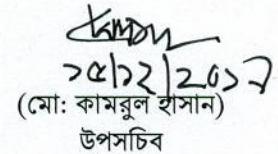 ২৫/১২/২০১৭
(মো: কামরুল হাসান)
উপসচিব